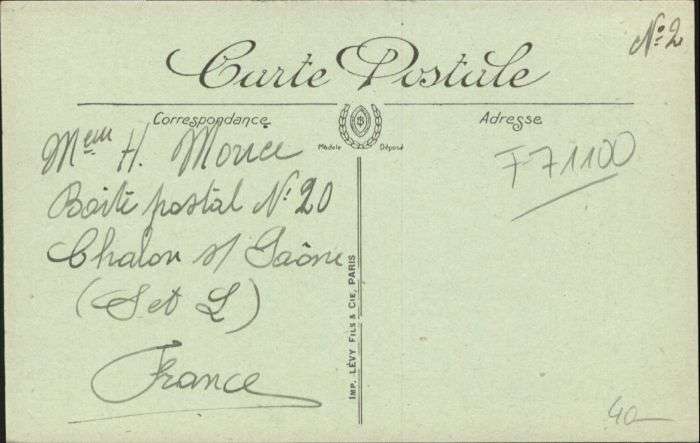 No. 2
Carte Postale
Correspondance
Adresse
Modèle Déposé
Mem H. Morice
Boite postal No. 20
Chalon s/ Saône
(S et L)
France
F-71100
IMP. LÉVY FILS & CIE, PARIS
40